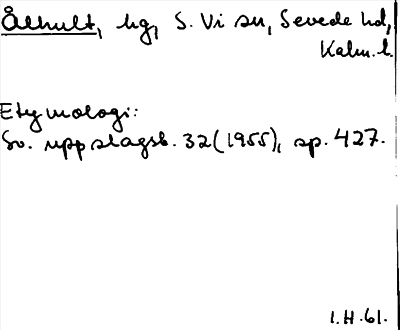 Ålhult, hg, S. Vi sn, Sevede hd,
Kalm. l.
Etymologi:
Sv. uppslagsb. 32 (1955), sp. 427.
I.H.61.